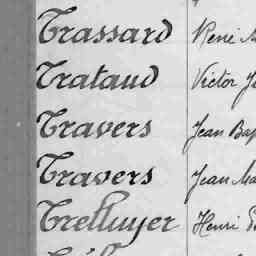 Trassard René
Trataud Victor
Travers Jean
Travers Jean
Trelluyer Henri